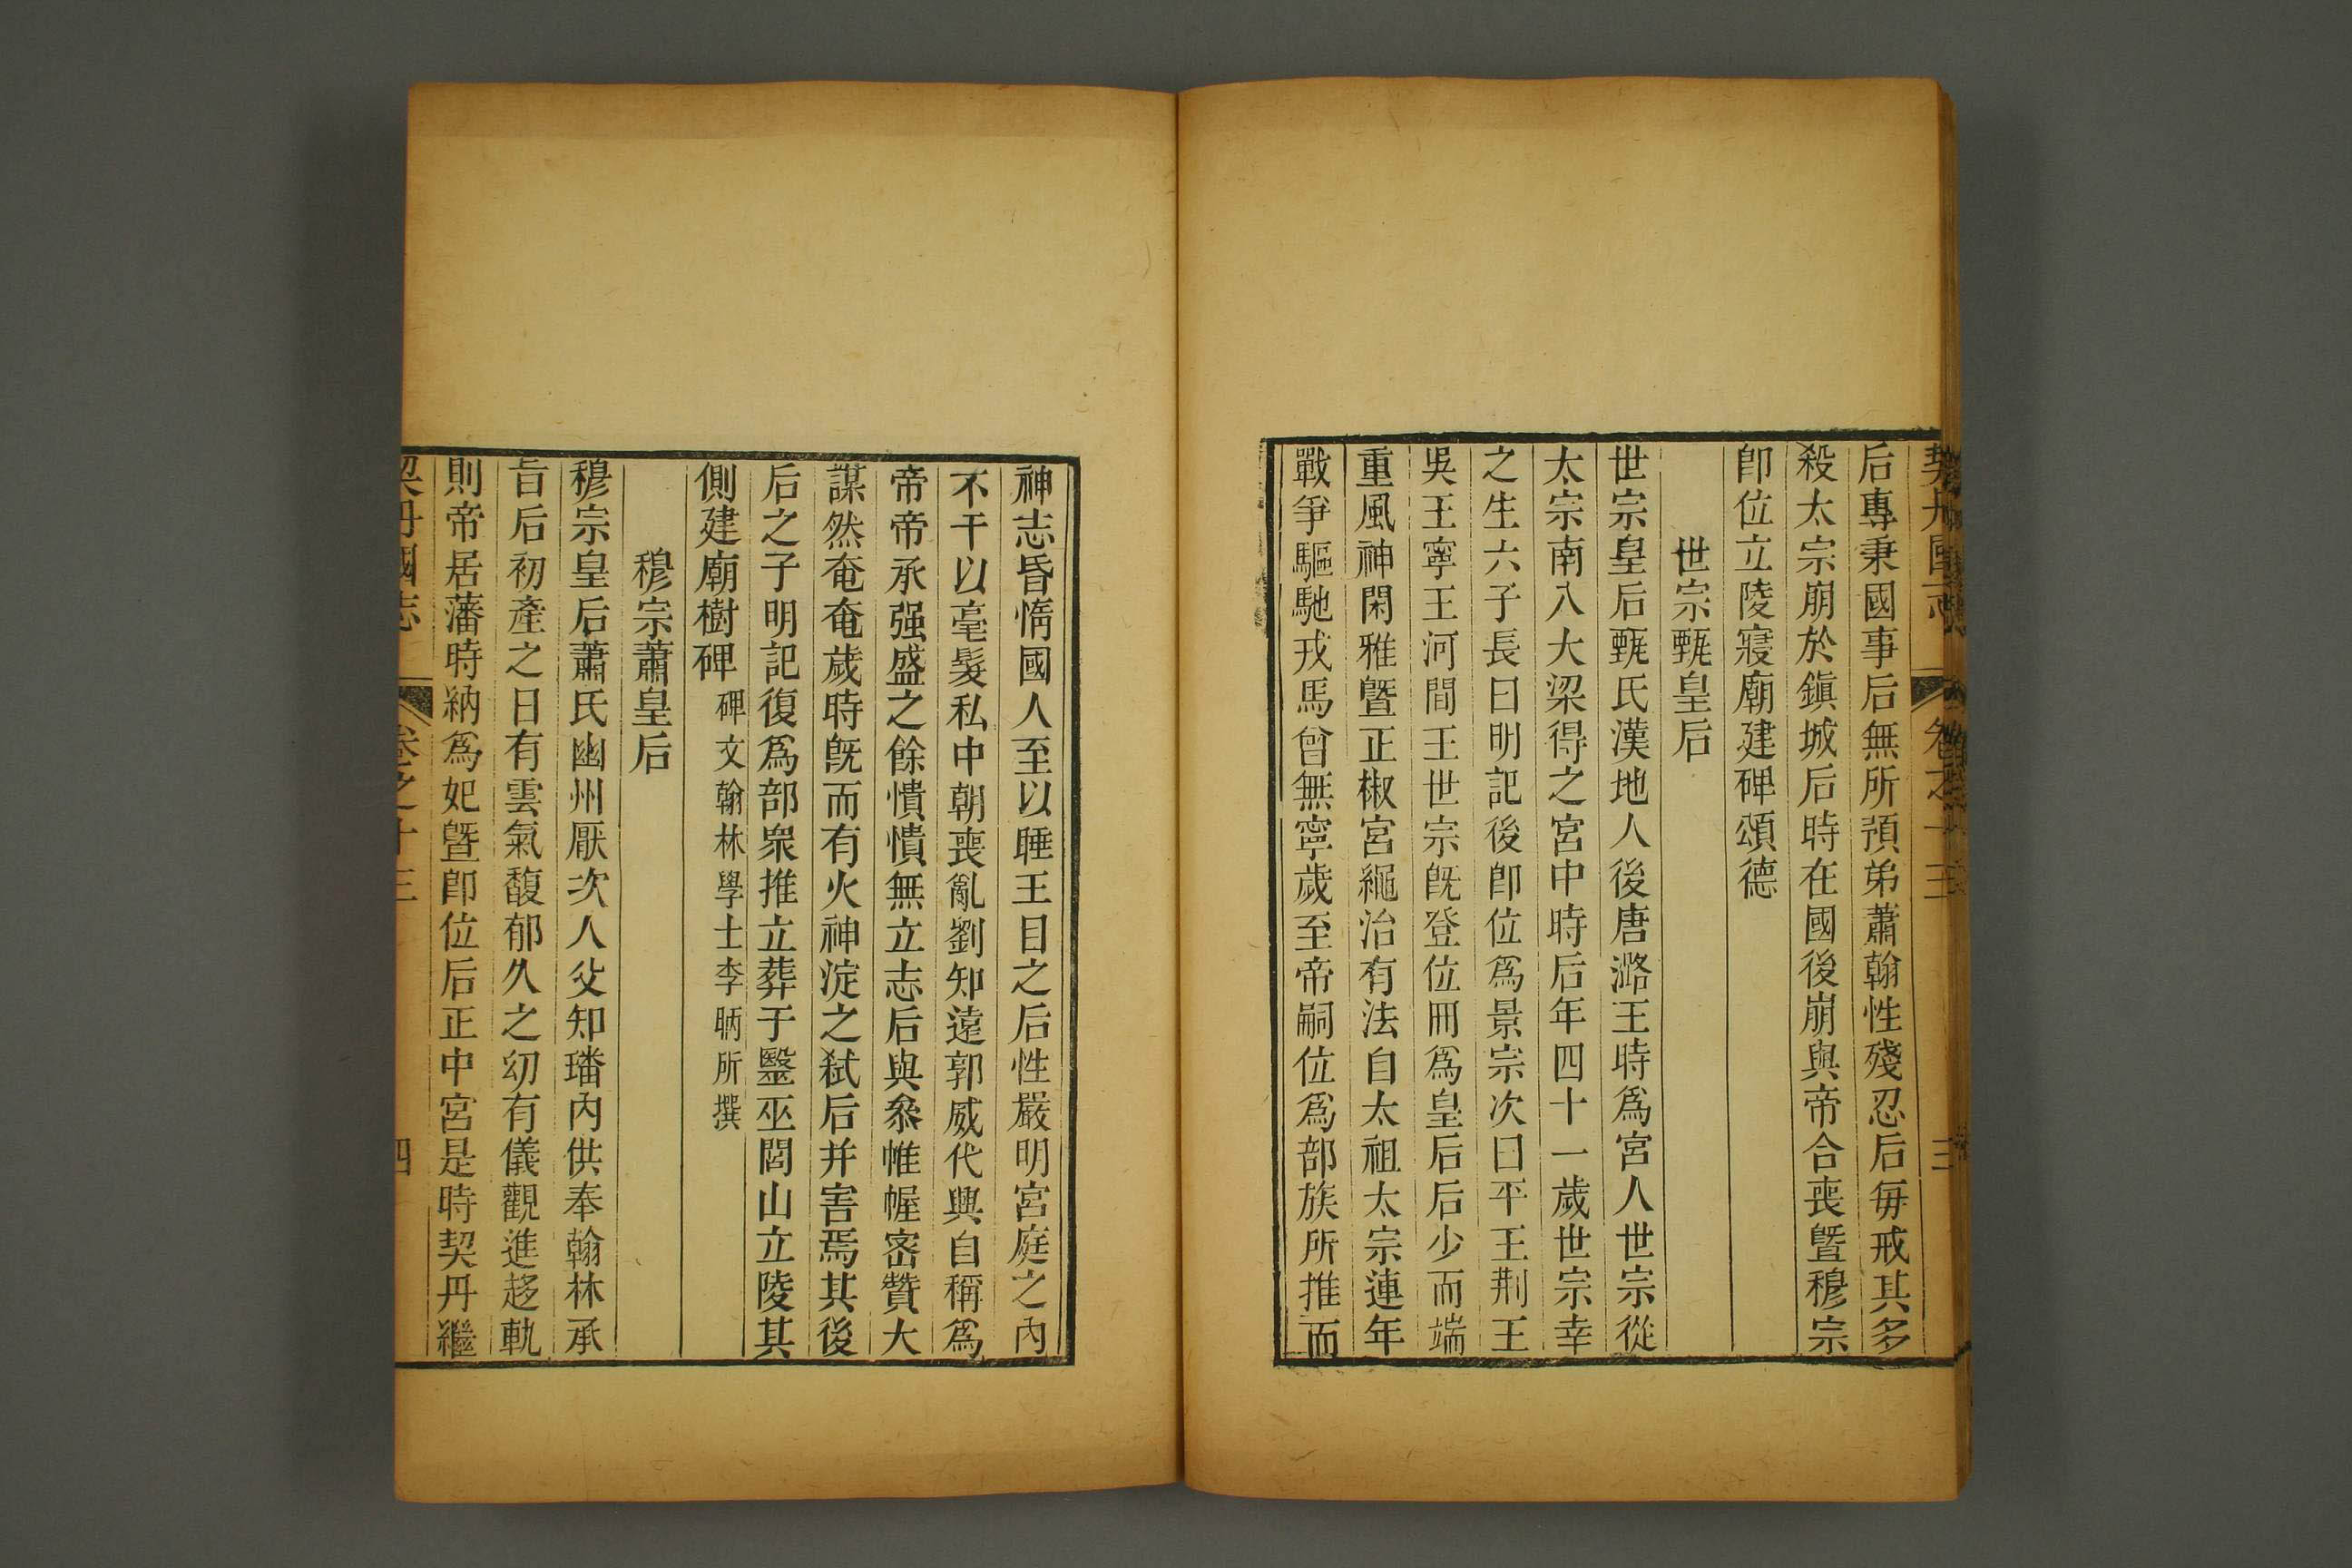 契丹國志 卷之十三 三
后專秉國事后無所預弟蕭翰性殘忍后每戒其多
殺太宗崩於鎮城后時在國後崩與帝合喪暨穆宗
卽位立陵寢廟建碑頌德
世宗甄皇后
世宗皇后甄氏漢地人後唐潞王時爲宮人世宗從
太宗南入大梁得之宮中時后年四十一歲世宗幸
之生六子長曰明記後卽位爲景宗次曰平王荆王
吳王寧王河間王世宗旣登位冊爲皇后后少而端
重風神閑雅曁正椒宮繩治有法自太祖太宗連年
戰爭驅馳戎馬曾無寧歲至帝嗣位爲部族所推而
神志昏惰國人至以睡王目之后性嚴明宮庭之內
不干以毫髮私中朝喪亂劉知遠郭威代興自稱爲
帝帝承强盛之餘憒憒無立志后與叅帷幄密贊大
謀然奄奄歲時旣而有火神淀之弑后并害焉其後
后之子明記復爲部衆推立葬于毉巫閭山立陵其
側建廟樹碑 碑文翰林學士李昞所撰
穆宗蕭皇后
穆宗皇后蕭氏幽州厭次人父知璠內供奉翰林承
旨后初產之日有雲氣馥郁久之幼有儀觀進趍軌
則帝居藩時納爲妃曁卽位后正中宮是時契丹繼
契丹國志 卷之十三 四